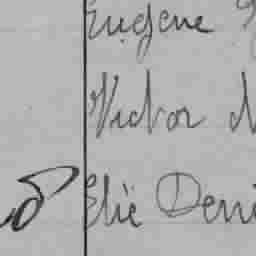 Eugene
Victor
Elie Deni